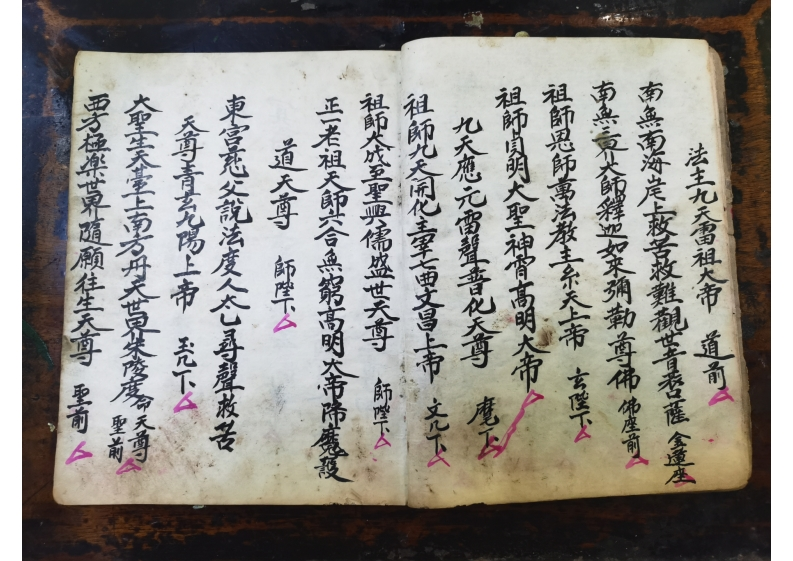 法主九天雷祖大帝　道前
南無南海岸上救苦救難觀世音菩薩　金蓮座
南無三界大師釋迦如來彌勒尊佛　佛座前
祖師恩師萬法教主玄天上帝　玄陛下
祖師貞明大聖神霄高明大帝
九天應元雷聲普化天尊　麾下
祖師九天開化主宰七曲文昌上帝　文几下
祖師大成至聖興儒盛世天尊　師陛下
正一老祖天師六合無窮高明大帝降魔護
道天尊　師陛下
東宮慈父說法度人太乙尋聲救苦
天尊青玄九陽上帝　玉几下
大聖生天臺上南方丹天世界朱陵度命天尊　聖前
西方極樂世界隨願往生天尊　聖前